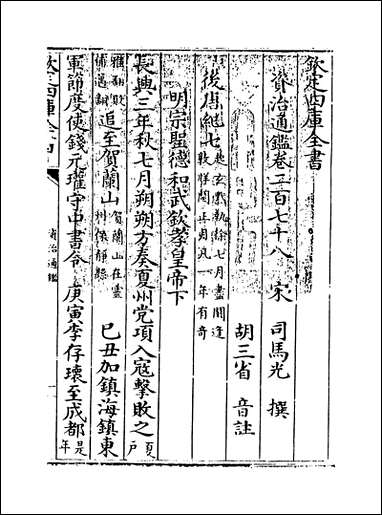 欽定四庫全書
資治通鑑卷二百七十八
宋 司馬光 撰
胡三省 音註
後唐紀七起玄黓執徐七月盡閼逢敦牂閏正月凡一年有奇
明宗聖德和武欽孝皇帝下
長興三年秋七月朔朔方奏夏州党項入寇擊敗之夏戶
雅翻敗補邁翻追至賀蘭山賀蘭山在靈州保靜縣 己丑加鎮海鎮東
軍節度使錢元瓘守中書令 庚寅李存瓌至成都是年
欽定四庫全書
資治通鑑
一